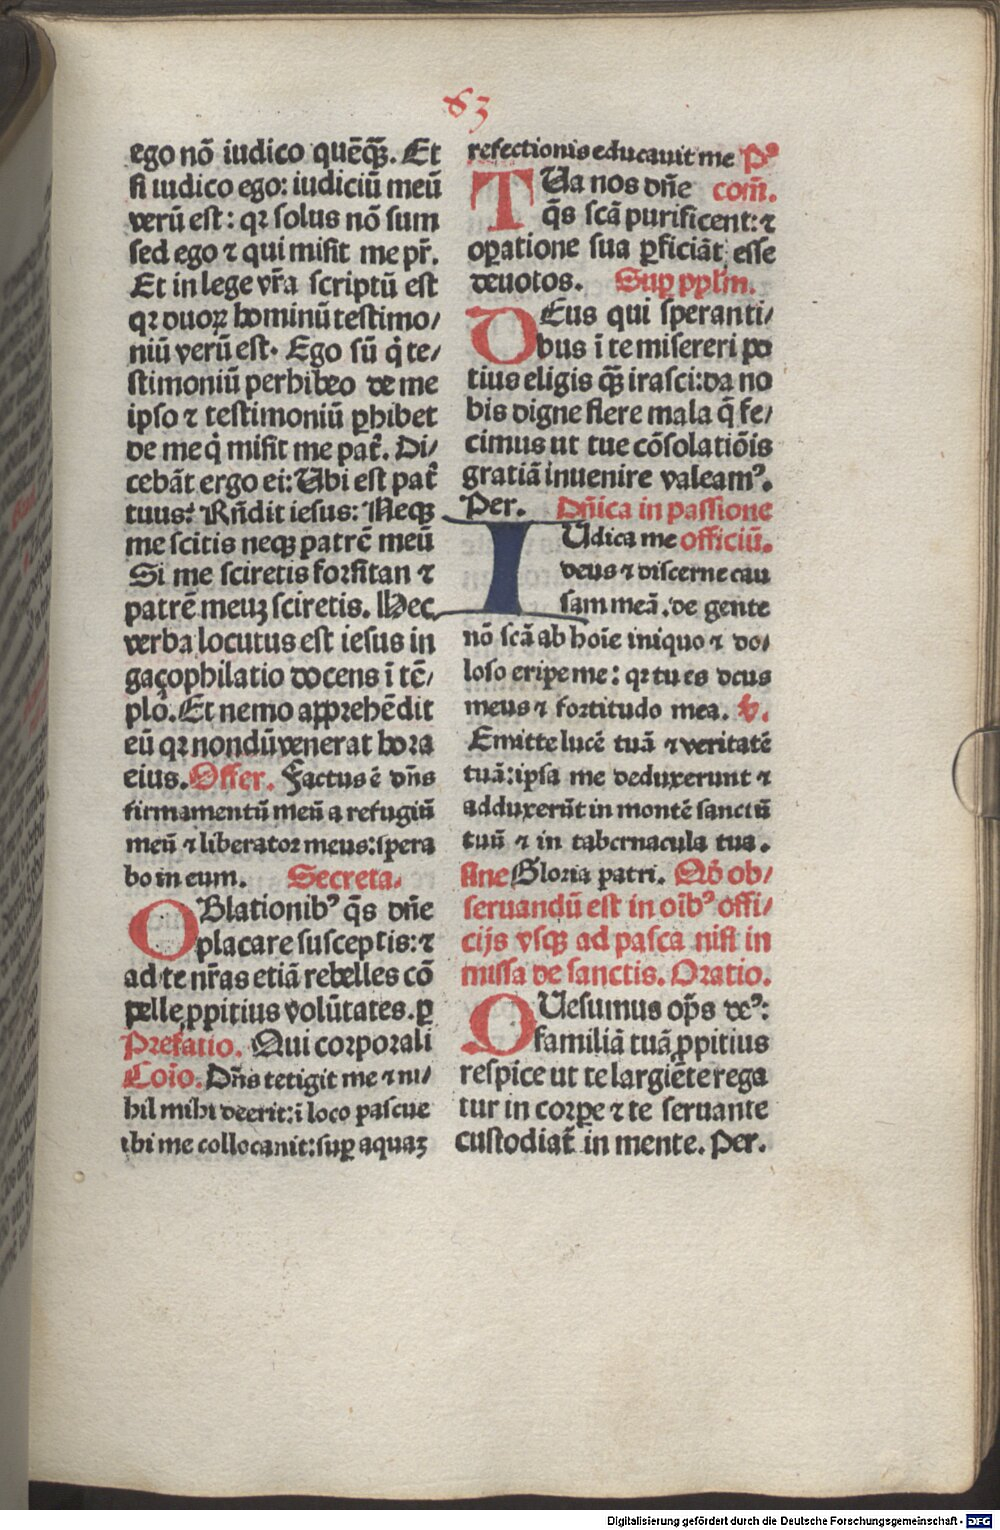 63
ego nō iudico quēq̄ꝫ. Et
si iudico ego: iudiciū meū
verū est: qꝛ solus nō sum
sed ego ⁊ qui misit me pr̄.
Et in lege vr̄a scriptū est
qꝛ duoꝝ hominū testimo/
niū verū est. Ego sū q̇ te/
stimoniū perhibeo de me
ipso ⁊ testimoniū ꝑhibet
de me q̇ misit me pat̄. Di/
cebāt ergo ei: Ubi est pat̄
tuus? Rñdit iesus: Neqꝫ
me scitis neqꝫ patrē meū
Si me sciretis forsitan ⁊
patrē meuꝫ sciretis. Hec
verba locutus est iesus in
gaçophilatio docens ī tē/
plo. Et nemo apprehēdit
eū qꝛ nondū venerat hora
eius. Offer. Factus ē dn̄s
firmamentū meū a refugiū
meū ⁊ liberator meus: spera
bo in eum. Secreta.
OBlationibꝰ q̄s dn̄e
placare susceptis: ⁊
ad te nr̄as etiā rebelles cō
pelle ꝓpitius volūtates. ꝑ
Prefatio. Qui corporali
Coīo. Dn̄s tetigit me ⁊ ni/
hil mihi deerit: ī loco pascue
ibi me collocauit: suꝑ aquaꝫ
refectionis educauit me Pꝰ
TUa nos dn̄e com̄.
q̄s scā purificent: ⁊
oꝑatione sua ꝑficiāt esse
deuotos. Suꝑ pplm̄.
DEus qui speranti/
bus ī te misereri po
tius eligis q̄ꝫ irasci: da no
bis digne flere mala q̄ fe/
cimus ut tue cōsolatiōis
gratiā inuenire valeamꝰ.
Per. Dn̄ica in passione
IUdica me officiū.
deus ⁊ discerne cau
sam meā. de gente
nō scā ab hoīe iniquo ⁊ do/
loso eripe me: qꝛ tu es deus
meus ⁊ fortitudo mea. ℣.
Emitte lucē tuā ⁊ veritatē
tuā: ipsa me deduxerunt ⁊
adduxerūt in montē sanctū
tuū ⁊ in tabernacula tua.
sine Gloria patri. Qđ ob/
seruandū est in oībꝰ offi/
cijs vsqꝫ ad pasca nisi in
missa de sanctis. Oratio.
QUesumus op̄s deꝰ:
familiā tuā ꝓpitius
respice ut te largiēte rega
tur in corꝑe ⁊ te seruante
custodiat̄ in mente. Per.
Digitalisierung gefördert durch die Deutsche Forschungsgemeinschaft - DFG